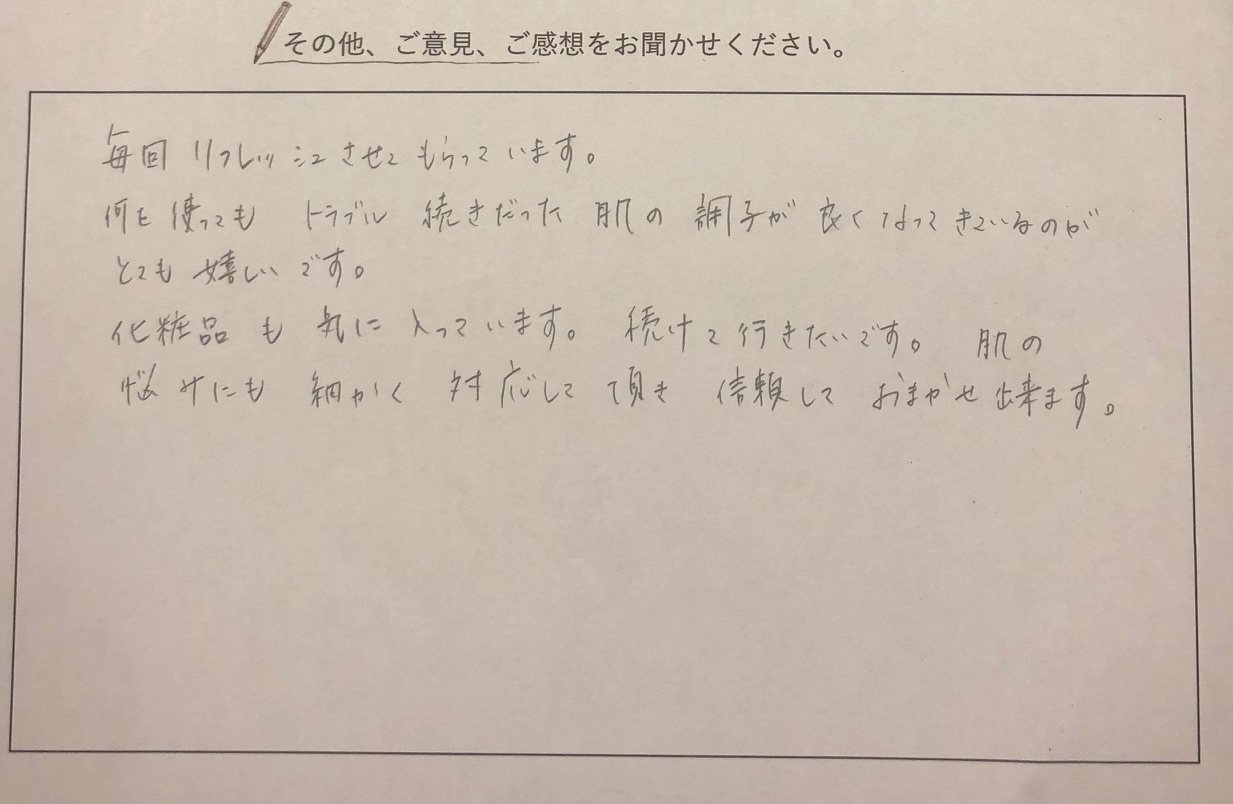 その他、ご意見、ご感想をお聞かせください。
毎回 リフレッシュさせてもらっています。
何を使っても トラブル 続きだった 肌の 調子が 良くなってきているのが
とても 嬉しいです。
化粧品も 気に入っています。 続けて行きたいです。 肌の
悩みにも 細かく 対応して頂き 信頼して おまかせ出来ます。